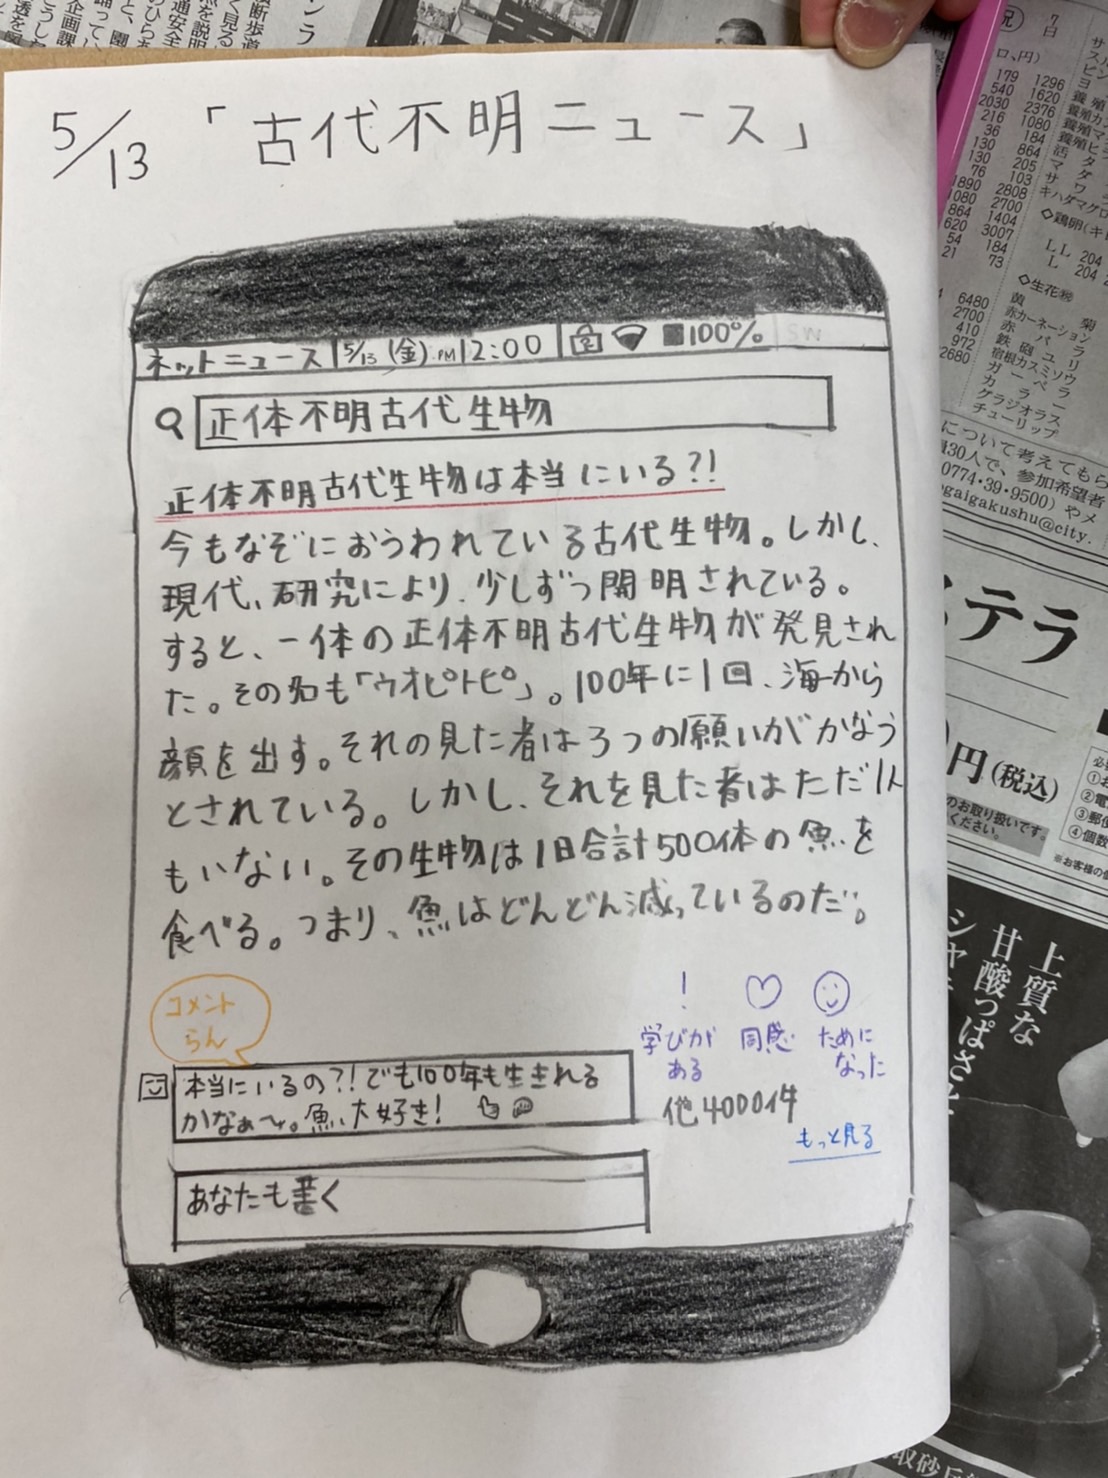 5/13 「古代不明ニュース」
ネットニュース 5/13 (金) PM 12:00 100%
正体不明古代生物
正体不明古代生物は本当にいる?!
今もなぞにおうわれている古代生物。しかし、
現代、研究により、少しずつ開明されている。
すると、一体の正体不明古代生物が発見され
た。その名も「ウオピトピ」。100年に1回、海から
顔を出す。それの見た者は3つの願いがかなう
とされている。しかし、それを見た者はただ1人
もいない。その生物は1日合計500体の魚を
食べる。つまり、魚はどんどん減っているのだ。
コメント
らん
! 
学びが
ある
同感
ために
なった
本当にいるの?!でも100年も生きれる
かなぁ〜。魚大好き!
他4000件
もっと見る
あなたも書く
7日
サ
ロ、円)
179 1296
540 1620
2030 2376
216 1080
36 184
130 864
130 205
76 103
1890 2808
1080 2700
864 1404
620 3007
54 184
21 73
キハダマグロ
◇鶏卵(キ
LL 204
L 204
◇生花
6480
2700
410
972
2680
菊
赤カーネーション
赤バラ
鉄砲ユリ
宿根カスミソウ
ガーベラ
カラー
グラジオラス
チューリップ
について考えてもら
130人で、参加希望者
0774・39・9500)やメ
ogaigakushu@city.
ステラ
円(税込)
のお取り扱いです。
ください。
上質な
甘酸っぱさと